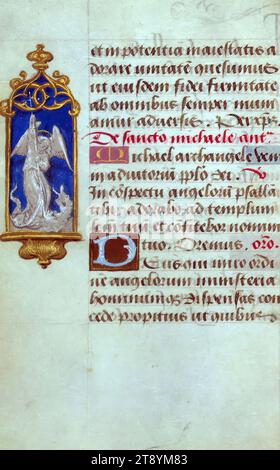 et in potentia maiestatis a
dorare unitatem quesumus
ut eiusdem fidei firmitate
ab omnibus semper muni
amur adversis . Per xpm.
De sancto michaele ant.
Michael archangele veni
in adiutorium pplo dei .
In conspectu angelorum psallā
tibi . adorabo ad templum
et confitebor nomini
tuo . Oremus . oro.
Deus qui miro ordi
ne angelorum ministeria
hominumq dispensas con
cede propitius ut quibus
alamy
Image ID: 2T8YM83
www.alamy.com